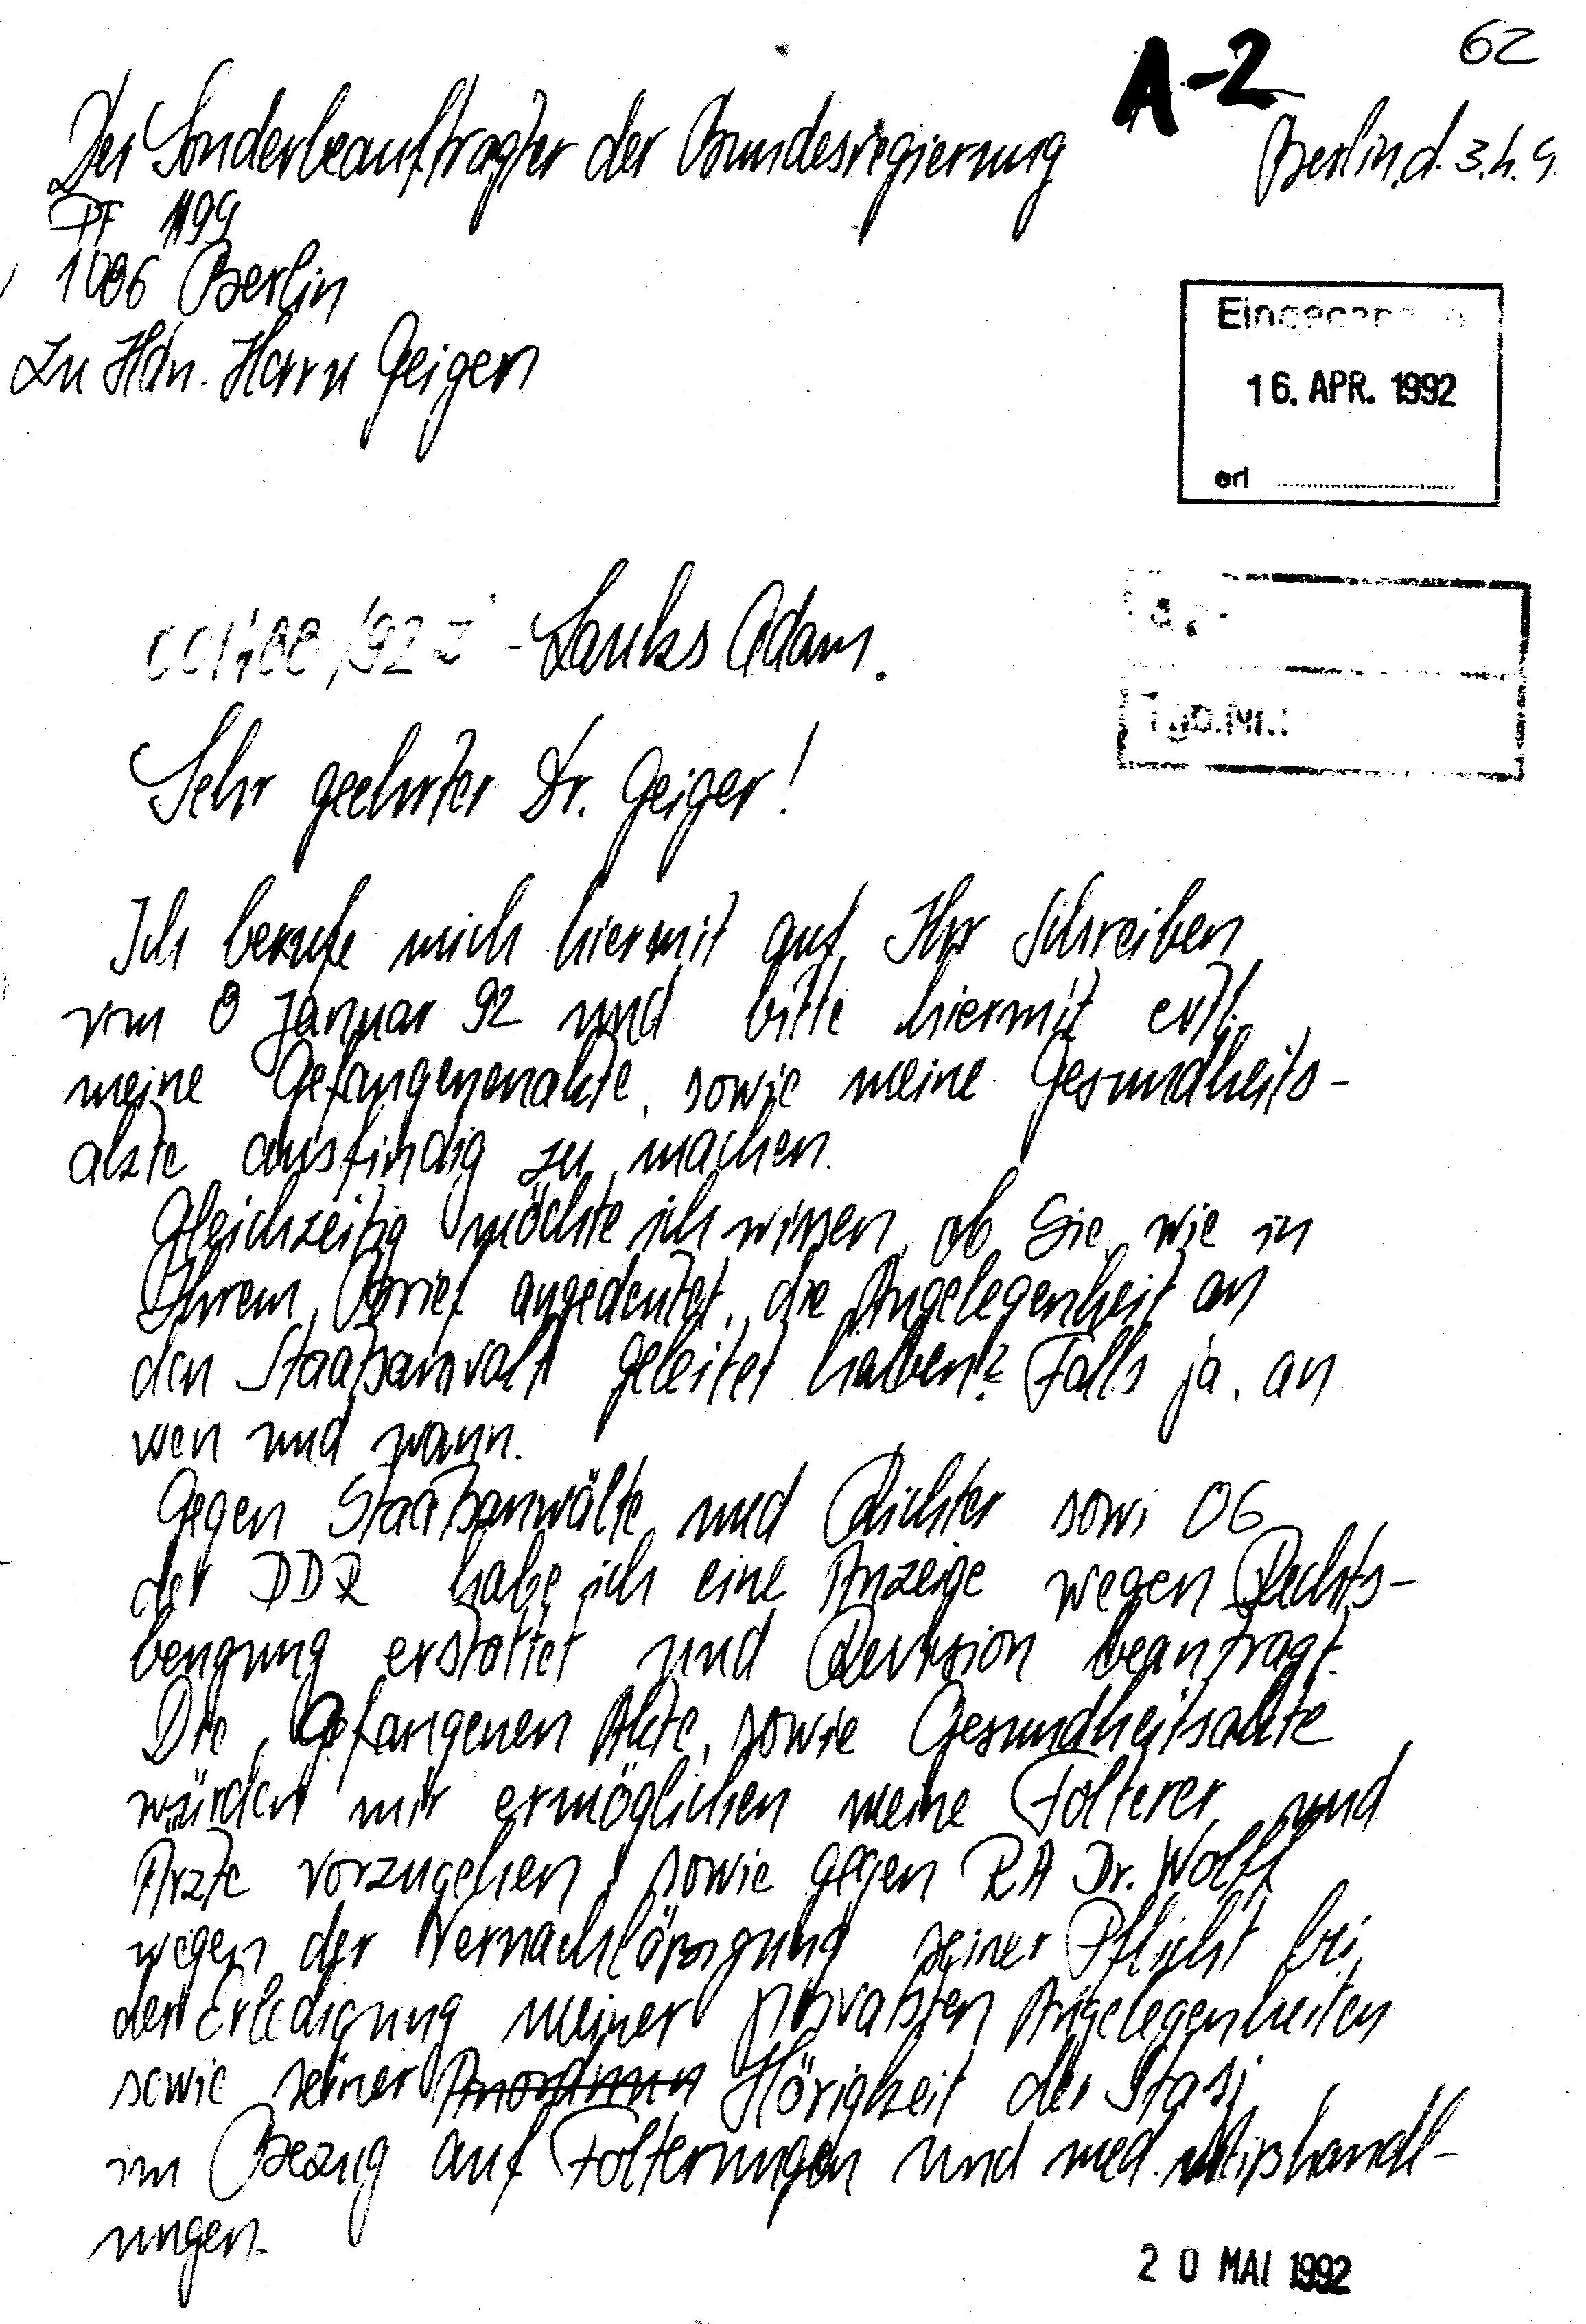 62
A-2
Der Sonderbeauftragter der Bundesregierung
Berlin, d. 3.4.9
PF 1199
1086 Berlin
Zu Hdn. Herrn Geigen
16. APR. 1992
erl
/92 Z - Lauks Adam.
Tgb.Nr.:
Sehr geehrter Dr. Geiger!
Ich berufe mich hiermit auf Ihr Schreiben
vom 8 Januar 92 und bitte hiermit
meine Gefangenenakte, sowie meine Gesundheits-
akte ausfindig zu machen.
Gleichzeitig möchte ich wissen, ob Sie, wie in
Ihrem Brief angedeutet, die Angelegenheit an
den Staatsanwalt geleitet haben? Falls ja, an
wen und wann.
Gegen Staatsanwälte und Richter sowi OG
der DDR habe ich eine Anzeige wegen Rechts-
beugung erstattet und Revision beantragt.
Die Gefangenen Akte, sowie Gesundheitsakte
würden mir ermöglichen meine Folterer und
Ärzte vorzugehen, sowie gegen RA Dr. Wolff
wegen der Vernachlässigung seiner Pflicht bei
der Erledigung meiner privatsten Angelegenheiten
sowie seiner Hörigkeit der Stasi
im Bezug auf Folterungen und med. Mißhandl-
ungen.
20 MAI 1992